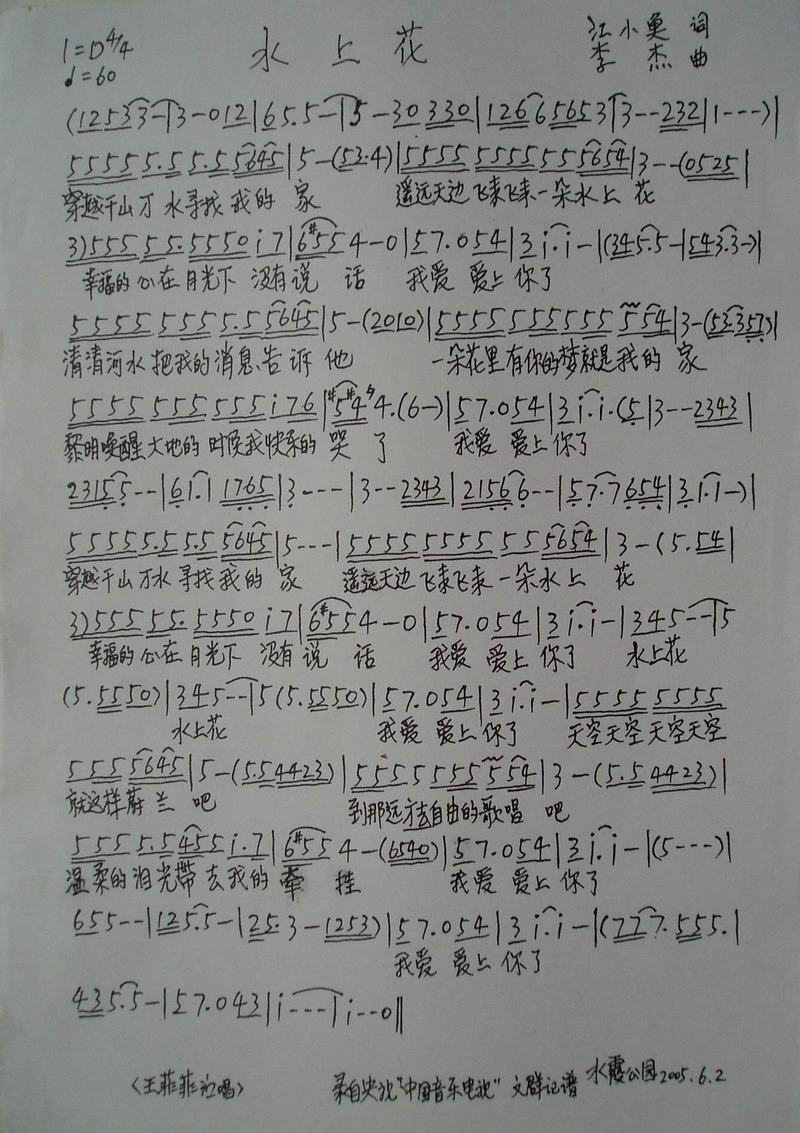 1=D 4/4 水上花 江小鱼 词
♩=60 李杰 曲
(12533-|3-012|65.5-|5-30330|12665653|3--232|1---)|
55555.55.55645|5-(53.4)|55555555555654|3--(0525|
穿越千山万水寻找我的家 遥远天边飞来飞来一朵水上花
3)55555.5550i7|6#554-0|57.054|3i.i-|(345.5-|543.3->|
幸福的心在月光下没有说话 我爱爱上你了
55555555.55645|5-(2010)|5555555555554|3-(53357)|
清清河水把我的消息告诉他 一朵花里有你的梦就是我的家
5555555555i76|#5#44.(6-)|57.054|3i.i.(5|3--2343|
黎明唤醒大地的时候我快乐的哭了 我爱爱上你了
23155--|61.11765|3----|3--2343|21566--|57.7654|31.1-)|
55555.55.55645|5---|55555555555654|3-(5.54|
穿越千山万水寻找我的家 遥远天边飞来飞来一朵水上花
3)55555.5550i7|6#554-0|57.054|3i.i-|345--|5
幸福的心在月光下没有说话 我爱爱上你了 水上花
(5.5550)|345--|5(5.5550)|57.054|3i.i-|55555555
水上花 我爱爱上你了 天空天空天空天空
5555645|5-(5.54423)|5555555554|3-(5.54423)|
就这样蔚兰吧 到那远方去自由的歌唱吧
5555.5455i.7|6#554-(6540)|57.054|3i.i-|(5---)|
温柔的泪光带去我的牵挂 我爱爱上你了
655--|125.5-|25.3-1253)|57.054|3i.i-|(777.555.|
我爱爱上你了
435.5-|57.043|i---|i--0‖
〈王菲菲演唱〉 录自央视“中国音乐电视” 文群记谱 水霞公园2005.6.2